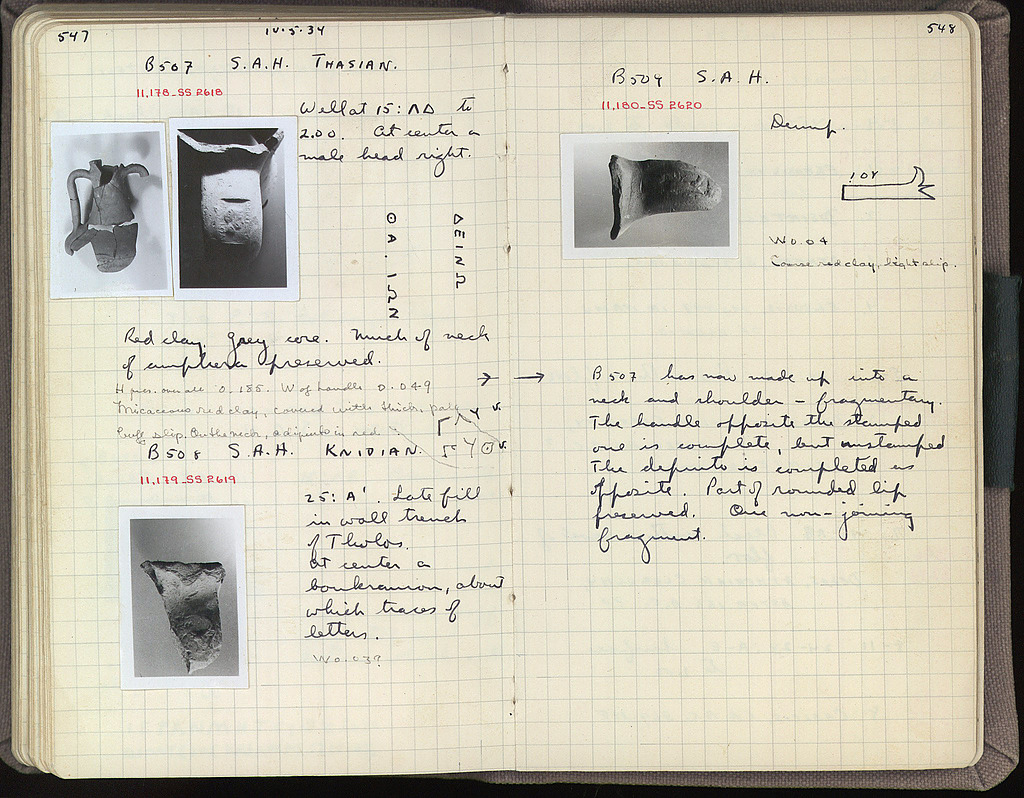 547
10.5.34
B507 S.A.H. THASIAN.
11,178-SS 2618
Well at 15:ΛΔ to
2.00. At center a
male head right.
ΘΑ.ΙΩΝ
ΔΕΙΝΩ
Red clay. Grey core. Much of neck
of amphora preserved.
H pres. over all 0.185. W of handle 0.049
Micaceous red clay, covered with thick, pale
buff slip. On the neck, a dipinto in red
B508 S.A.H. KNIDIAN.
11,179-SS 2619
25: A'. Late fill
in wall trench
of Tholos.
At center a
boukranion, about
which traces of
letters.
W 0.039
548
B509 S.A.H.
11,180-SS 2620
Dump.
W 0.04
Coarse red clay, light slip.
B507 has now made up into a
neck and shoulder – fragmentary.
The handle opposite the stamped
one is complete, but unstamped
The dipinto is completed as
opposite. Part of rounded lip
preserved. One non-joining
fragment.